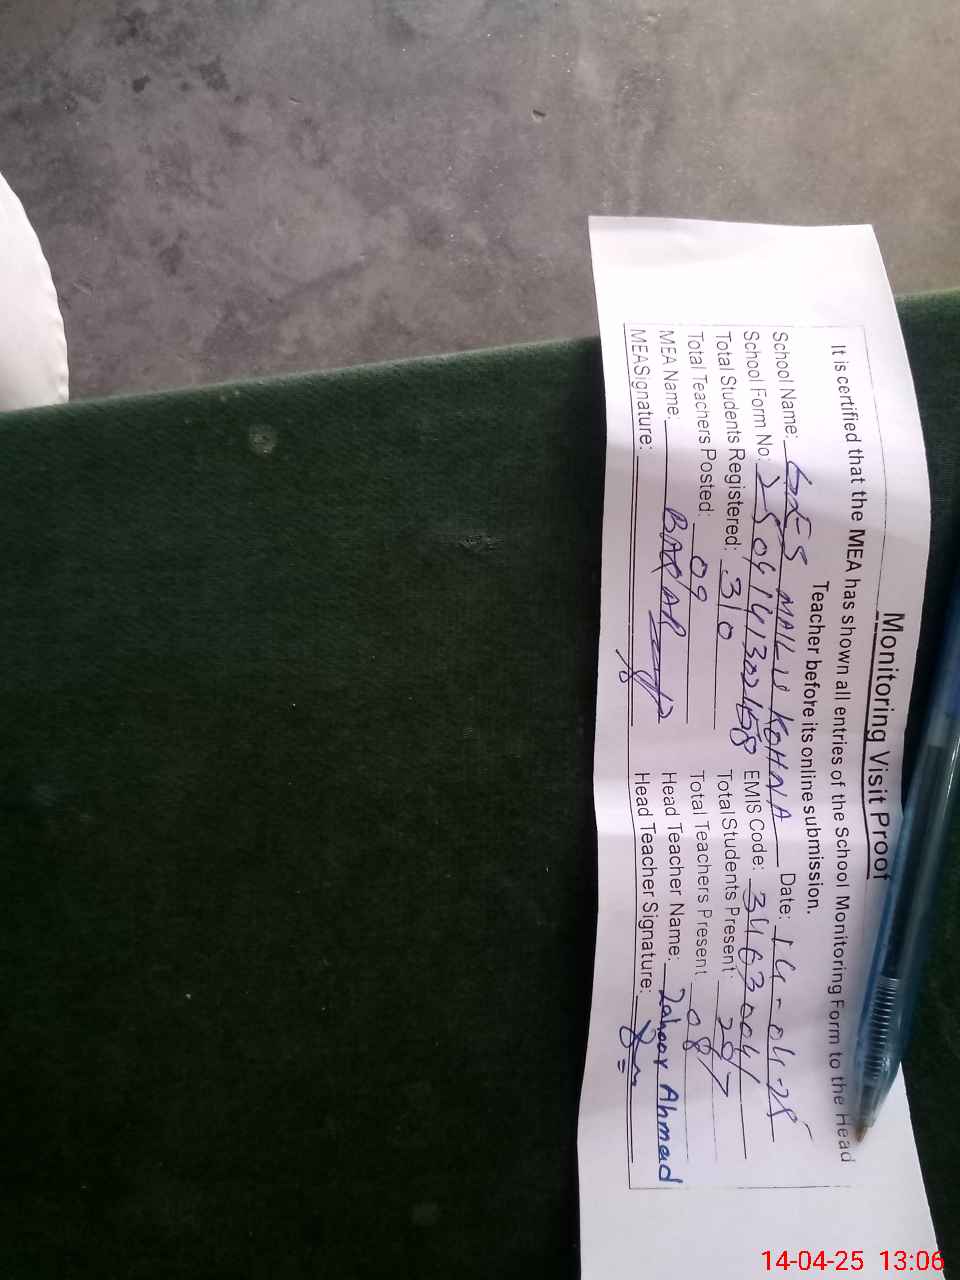 Monitoring Visit Proof
It is certified that the MEA has shown all entries of the School Monitoring Form to the Head
Teacher before its online submission.
School Name: GES MALLU KOHNA Date: 14-04-25
School Form No: EMIS Code: 34630041
Total Students Registered: 310 Total Students Present: 297
Total Teachers Posted: 09 Total Teachers Present 08
MEA Name: Head Teacher Name: Zahoor Ahmad
MEASignature: Head Teacher Signature:
14-04-25 13:06